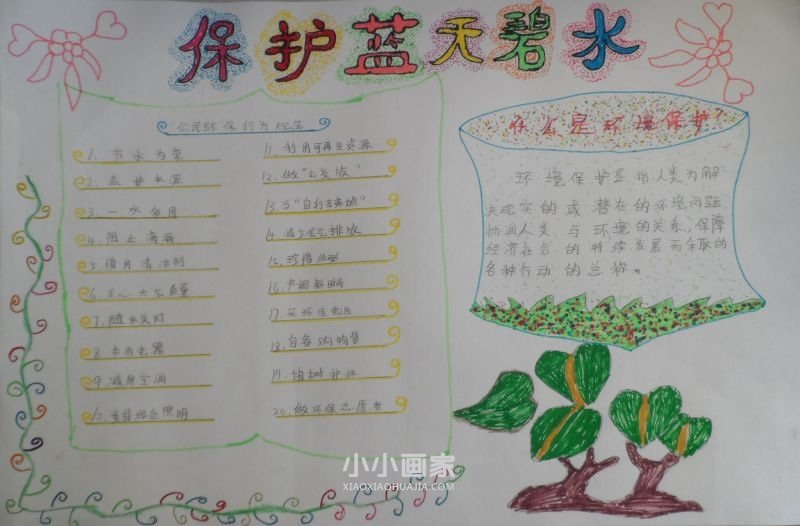 保护蓝天碧水
公民环保行为规范
1. 节水为荣
2. 监护水源
3. 一水多用
4. 阻止滴漏
5. 慎用清洁剂
6. 关心大气质量
7. 随手关灯
8. 节用电器
9. 减用空调
10. 支持绿色照明
11. 利用可再生资源
12. 做“公交族”
13. 当“自行车英雄”
14. 减少尾气排放
15. 珍惜纸张
16.
17. 买环保电池
18.
19. 植树护林
20. 做环保志愿者
什么是环境保护?
环境保护是指人类为解
决现实的或潜在的环境问题,
协调人类与环境的关系,保障
经济社会的持续发展而采取的
各种行动的总称。
小小画家
XIAOXIAOHUAJIA.COM